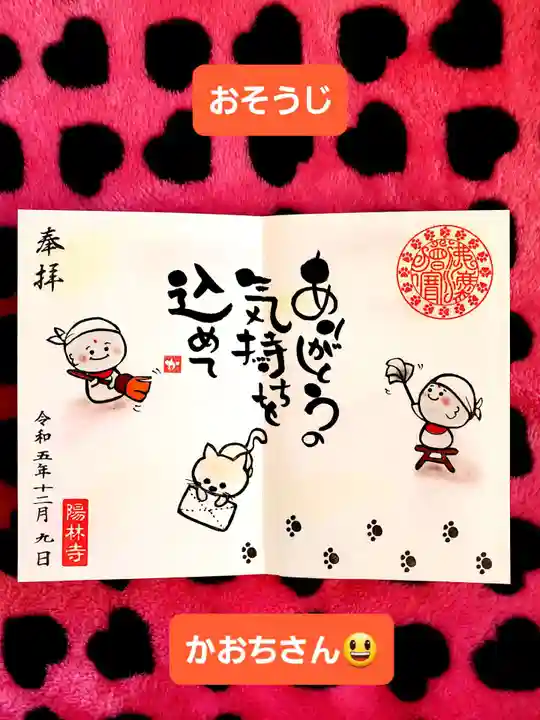 おそうじ
ありがとうの
気持ちを
込めて
か
奉拝
令和五年十二月九日
陽林寺
佛法僧寶
かおちさん😃